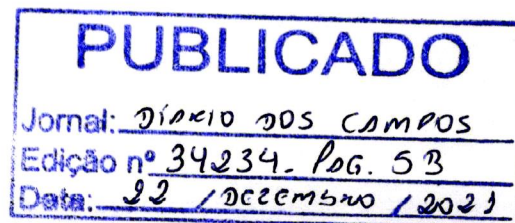 PUBLICADO
Jornal: DIÁRIO DOS CAMPOS
Edição nº 34234. PAG. 5B
Data: 22 / DEZEMBRO / 2021